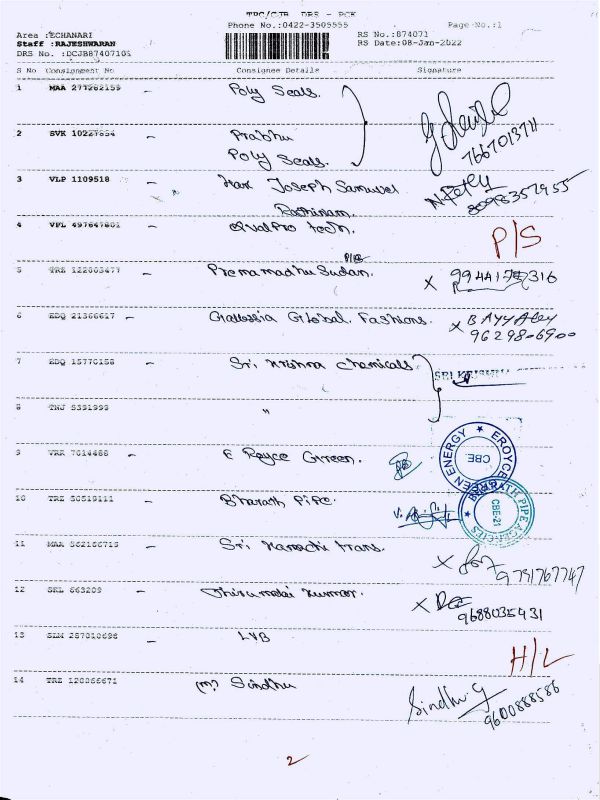 TPC/CJB DRS - PCK
Phone No.:0422-3505555 Page No.:1
Area :ECHANARI RS No.:874071
Staff :RAJESHWARAN RS Date:08-Jan-2022
DRS No. :DCJB8740710
S No Consignment No Consignee Details Signature
1 MAA 277262159 - Poly Seals.
7667013711
2 SVK 10227654 - Prabhu
Poly Seals.
3 VLP 1109518 - Joseph Samuvel
8098357955
Rathinam.
4 VFL 497647801 - QualPro Tech. P/S
5 TRE 122803477 - Premamadhu Sudan. X
6 EDQ 21366617 - Global Fashions. X B Ayy
96298
7 EDQ 15770158 - Sri Krishna Chemicals
8 TNJ 5351999 "
9 VRR 7014488 - E Royce Green.
EROYCE GREEN ENERGY CBE
10 TRZ 50519111 - Bharath Pipe.
BHARATH PIPE AGENCIES CBE-21
11 MAA 562166715 - Sri trans. X
9791767747
12 SKL 663209 - Thirumalai Kumar. X
9688035431
13 SLM 257010698 - LVB H/L
14 TRZ 120066671 (m) Sindhu Sindhu.G
9600888586
2